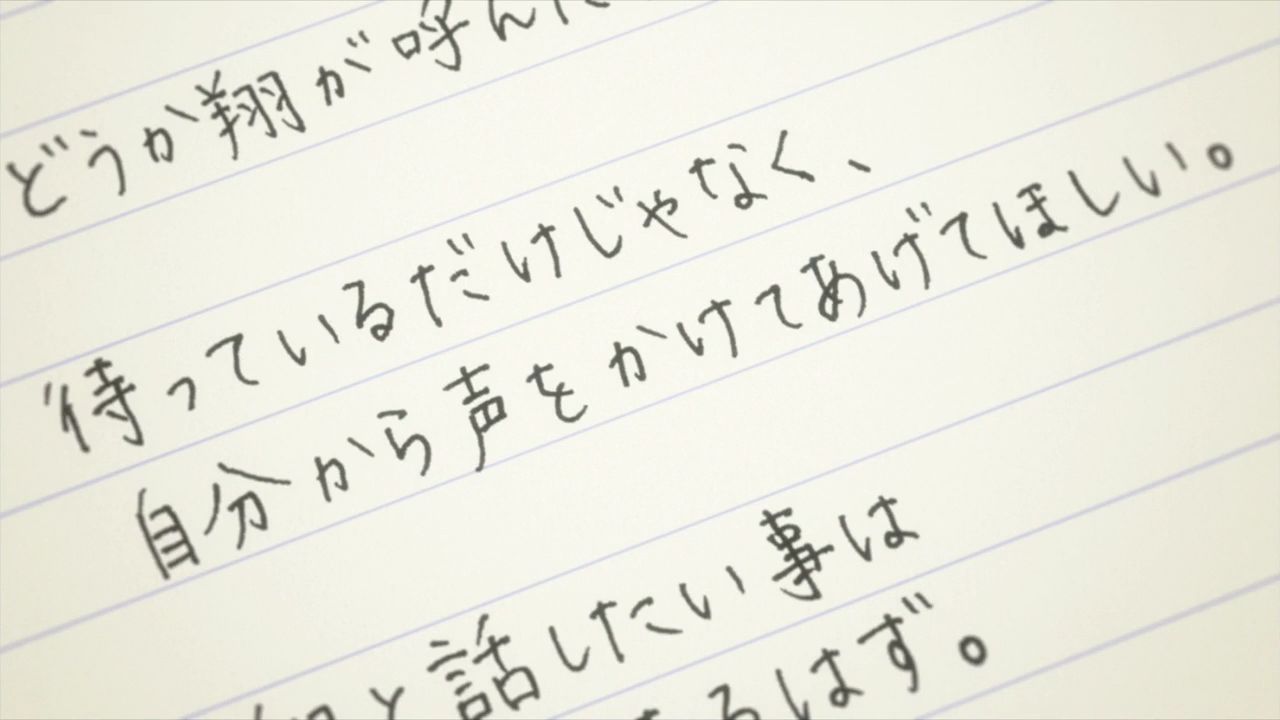 どうか翔が呼んだ
待っているだけじゃなく、
自分から声をかけてあげてほしい。
と話したい事は
るはず。